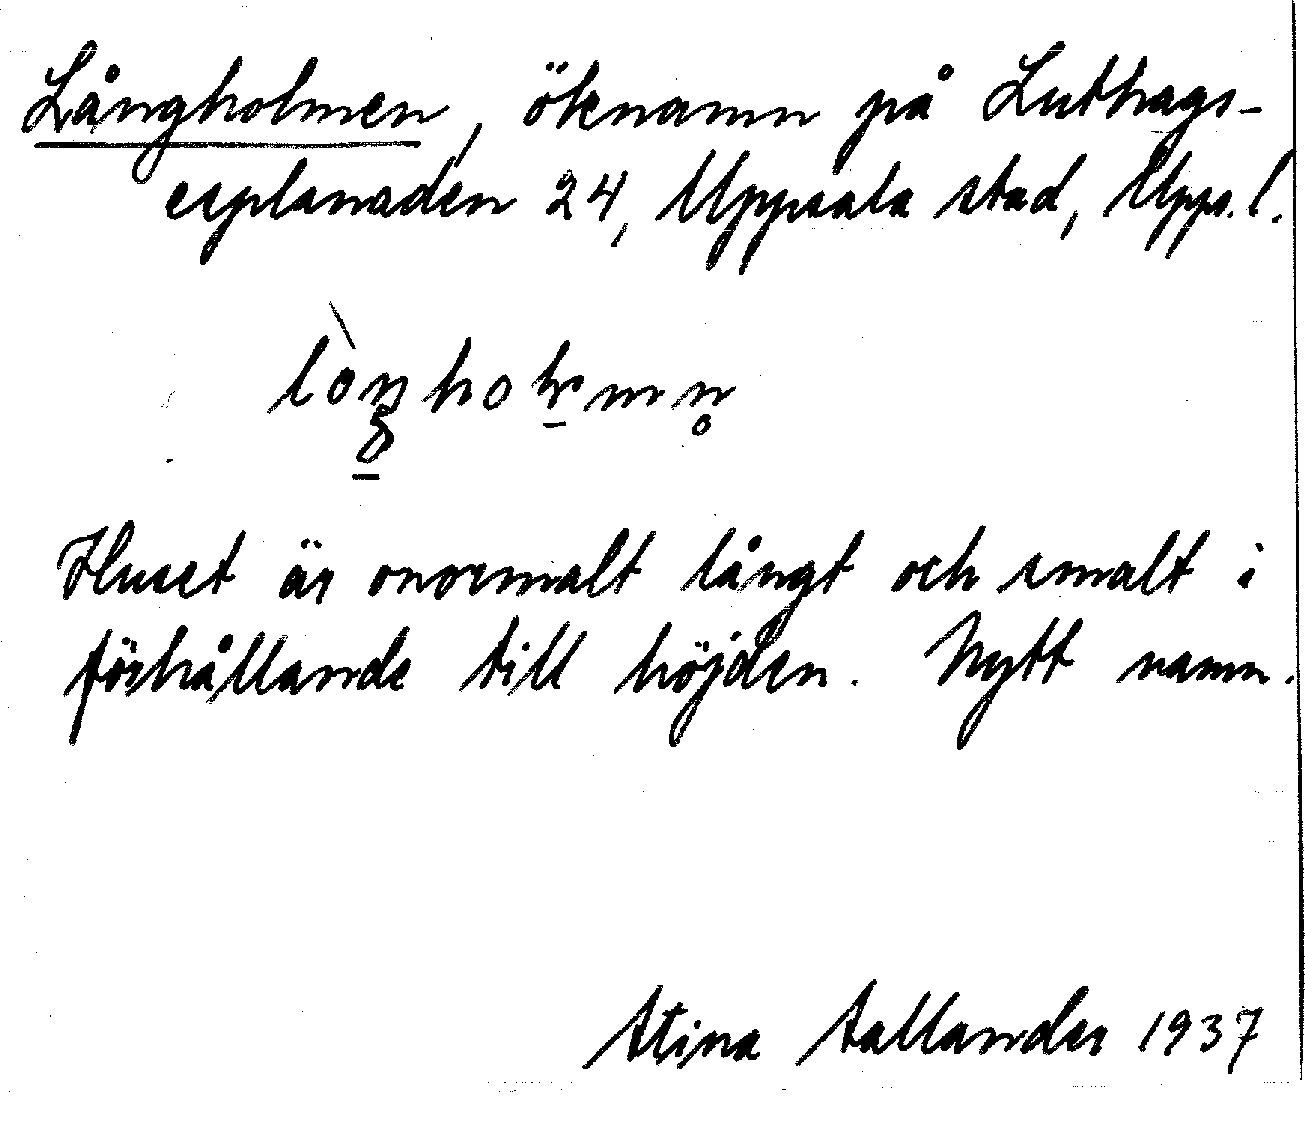 Långholmen, öknamn på Luthags-
esplanaden 24, Uppsala stad, Upps. l.
Huset är onormalt långt och smalt i
förhållande till höjden. Nytt namn.
Stina 1937